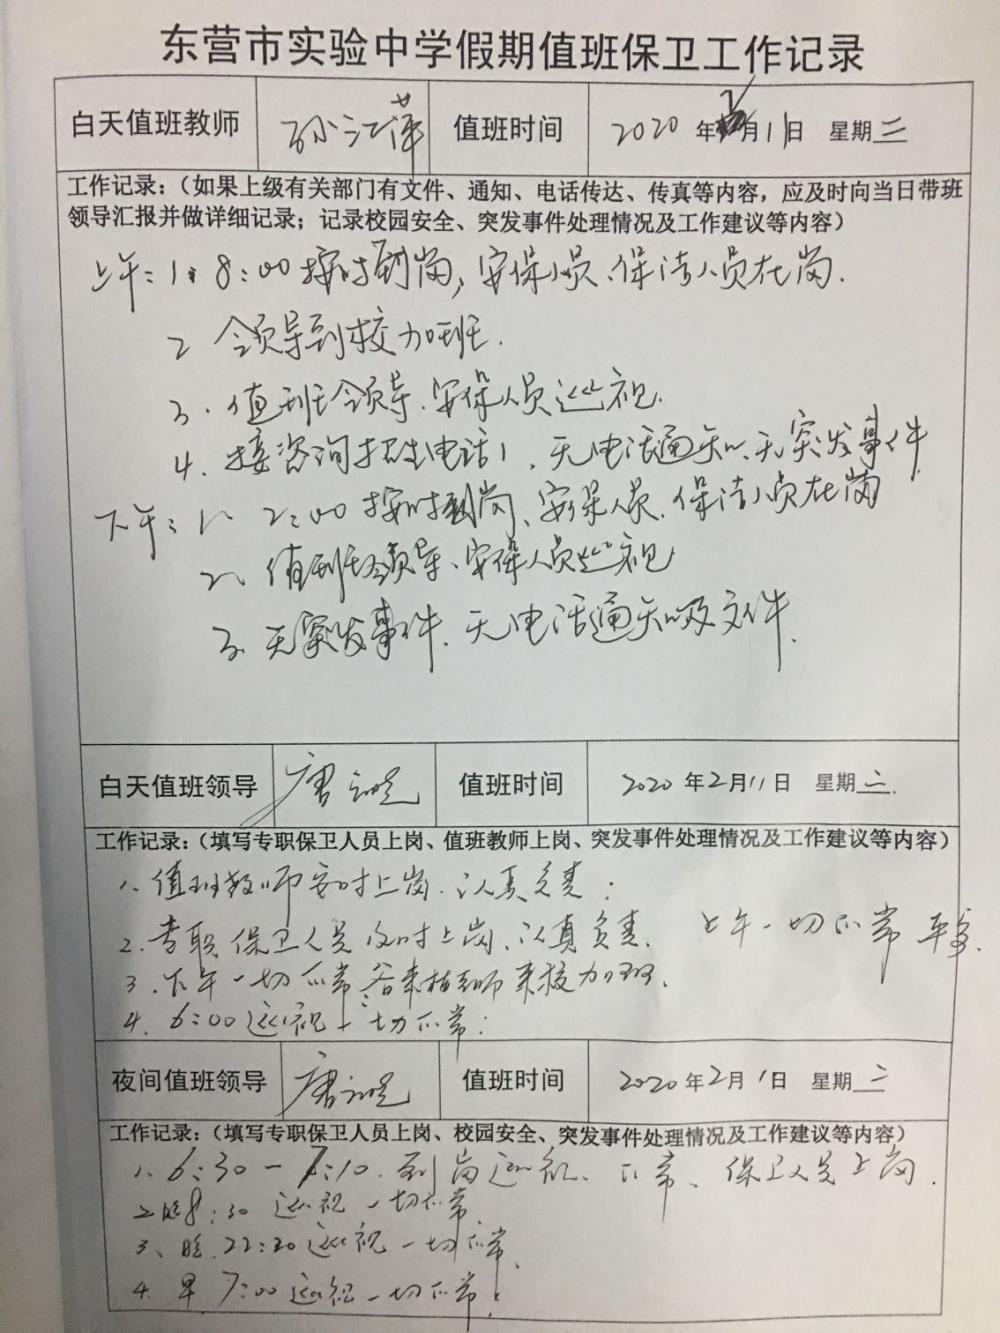 东营市实验中学假期值班保卫工作记录
白天值班教师 孙江萍 值班时间 2020年 月11日 星期二
工作记录：（如果上级有关部门有文件、通知、电话传达、传真等内容，应及时向当日带班
领导汇报并做详细记录；记录校园安全、突发事件处理情况及工作建议等内容）
上午：1、8：00按时到岗，安保人员、保洁人员在岗．
2 领导到校加班．
3．值班领导、安保人员巡视．
4．接咨询招生电话1，无电话通知、无突发事件
下午：1、2：00按时到岗、安保人员、保洁人员在岗
2、值班领导、安保人员巡视
3、无突发事件、无电话通知及文件．
白天值班领导 唐 值班时间 2020年2月11日 星期二．
工作记录：（填写专职保卫人员上岗、值班教师上岗、突发事件处理情况及工作建议等内容）
1、值班教师按时上岗、认真负责；
2．专职保卫人员及时上岗、认真负责． 上午一切正常
3．下午一切正常 老师来校加班．
4．6：00巡视一切正常；
夜间值班领导 唐 值班时间 2020年2月1日 星期二
工作记录：（填写专职保卫人员上岗、校园安全、突发事件处理情况及工作建议等内容）
1、6：30－7：10．到岗巡视、正常、保卫人员上岗．
2晚8：30 巡视一切正常
3、晚22：20巡视一切正常
4．早7：00巡视一切正常；